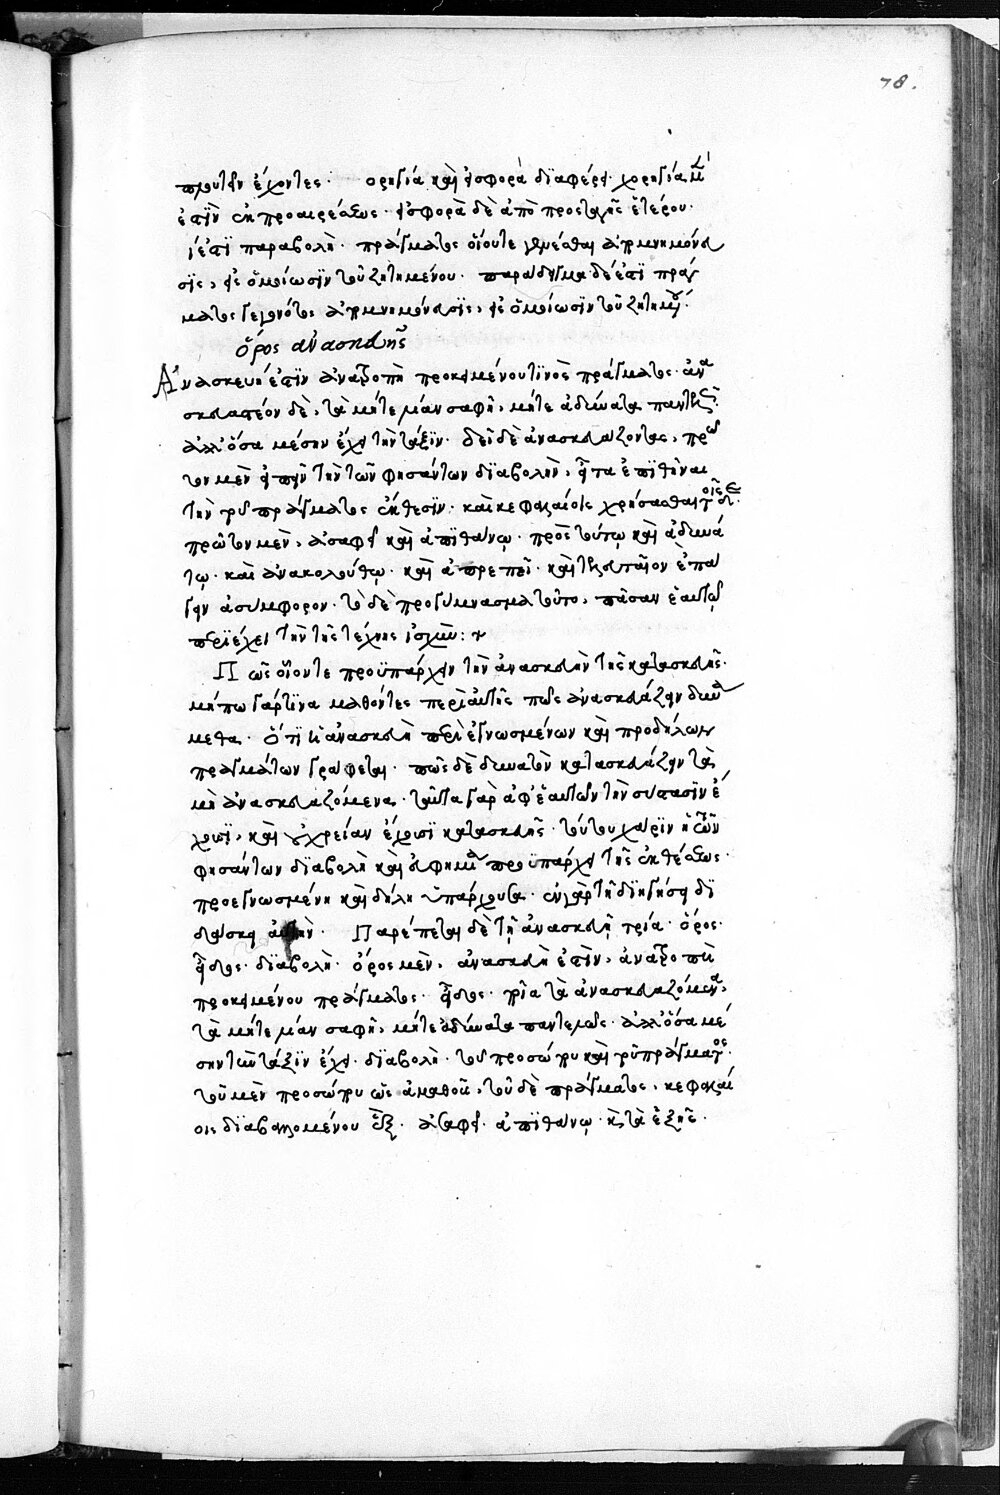 78.
πλουτεῖν ἔχοντες· ορηγία καὶ εἰσφορὰ διαφέρει· χορηγία μὲν
ἐστὶν ἐκ προαιρέσεως· εἰσφορὰ δὲ ἀπὸ προσταγῆς ἑτέρου·
ἐστι παραβολὴ· πράγματος οἵουτε γενέσθαι ἀπομνημόνευ
σις, εἰς ὁμοίωσιν τοῦ ζητημένου· παράδειγμα δέ ἐστι πράγ
ματος γεγονότος ἀπομνημόνευσις, εἰς ὁμοίωσιν τοῦ ζητημένου·
ὅρος ἀνασκευῆς
Ἀνασκευή ἐστὶν ἀνατροπὴ προκειμένου τινὸς πράγματος· ἀνα
σκευαστέον δὲ, τὰ μήτε λίαν σαφῆ, μήτε ἀδύνατα παντελῶς·
ἀλλ' ὅσα μέσην ἔχει τὴν τάξιν· δεῖ δὲ ἀνασκευάζοντας, πρῶ
τον μὲν εἰπεῖν τὴν τῶν φησάντων διαβολὴν, εἶτα ἐπιθεῖναι
τὴν τοῦ πράγματος ἔκθεσιν· καὶ κεφαλαίοις χρήσασθαι τοῖσδε·
πρῶτον μὲν, ἀσαφεῖ καὶ ἀπιθάνῳ· πρὸς τούτῳ καὶ ἀδυνά
τῳ· καὶ ἀνακολούθῳ· καὶ ἀπρεπεῖ· καὶ τελευταῖον ἐπα
γειν ἀσυμφορον· τὸ δὲ προγύμνασμα τοῦτο, πᾶσαν ἑαυτῷ
περιέχει τὴν τῆς τέχνης ἰσχύν:
Πῶς οἵοντε προϋπάρχειν τὴν ἀνασκευὴν τῆς κατασκευῆς·
μήπω γάρ τινα μαθόντες περὶ αὐτῆς πῶς ἀνασκευάζειν δυνά
μεθα· Ὅτι ἡ ἀνασκευὴ περὶ ἐγνωσμένων καὶ προδήλων
πραγμάτων γράφεται· πῶς δὲ δυνατὸν κατασκευάζειν τὰ
μὴ ἀνασκευαζόμενα· ταῦτα γὰρ ἀφ' ἑαυτῶν τὴν συστασιν ἔ
χουσι, καὶ οὐ χρείαν ἔχουσι κατασκευῆς· τούτου χάριν ἡ τῶν
φησάντων διαβολὴ καὶ εὐφημία προϋπάρχει τῆς ἐκθέσεως·
προεγνωσμένη καὶ δήλη ὑπάρχουσα· ἐν γὰρ τῇ διηγήσει δι
δάσκει αὐτὴν· Παρέπεται δὲ τῇ ἀνασκευῇ τρία· ὅρος·
εἶδος· διαβολὴ· ὅρος μὲν, ἀνασκευὴ ἐστὶν, ἀνατροπὴ
προκειμένου πράγματος· εἶδος· τρία τὰ ἀνασκευαζόμενα,
τὰ μήτε λίαν σαφῆ, μήτε ἀδύνατα παντελῶς· ἀλλ' ὅσα μέ
σην τὴν τάξιν ἔχει· διαβολὴ· τοῦ προσώπου καὶ τοῦ πράγματος·
τοῦ μὲν προσώπου ὡς ἀμαθοῦς, τοῦ δὲ πράγματος, κεφαλαί
οις διαβαλλομένου ἓξ· ἀσαφεῖ· ἀπιθάνῳ· καὶ τὰ ἑξῆς·